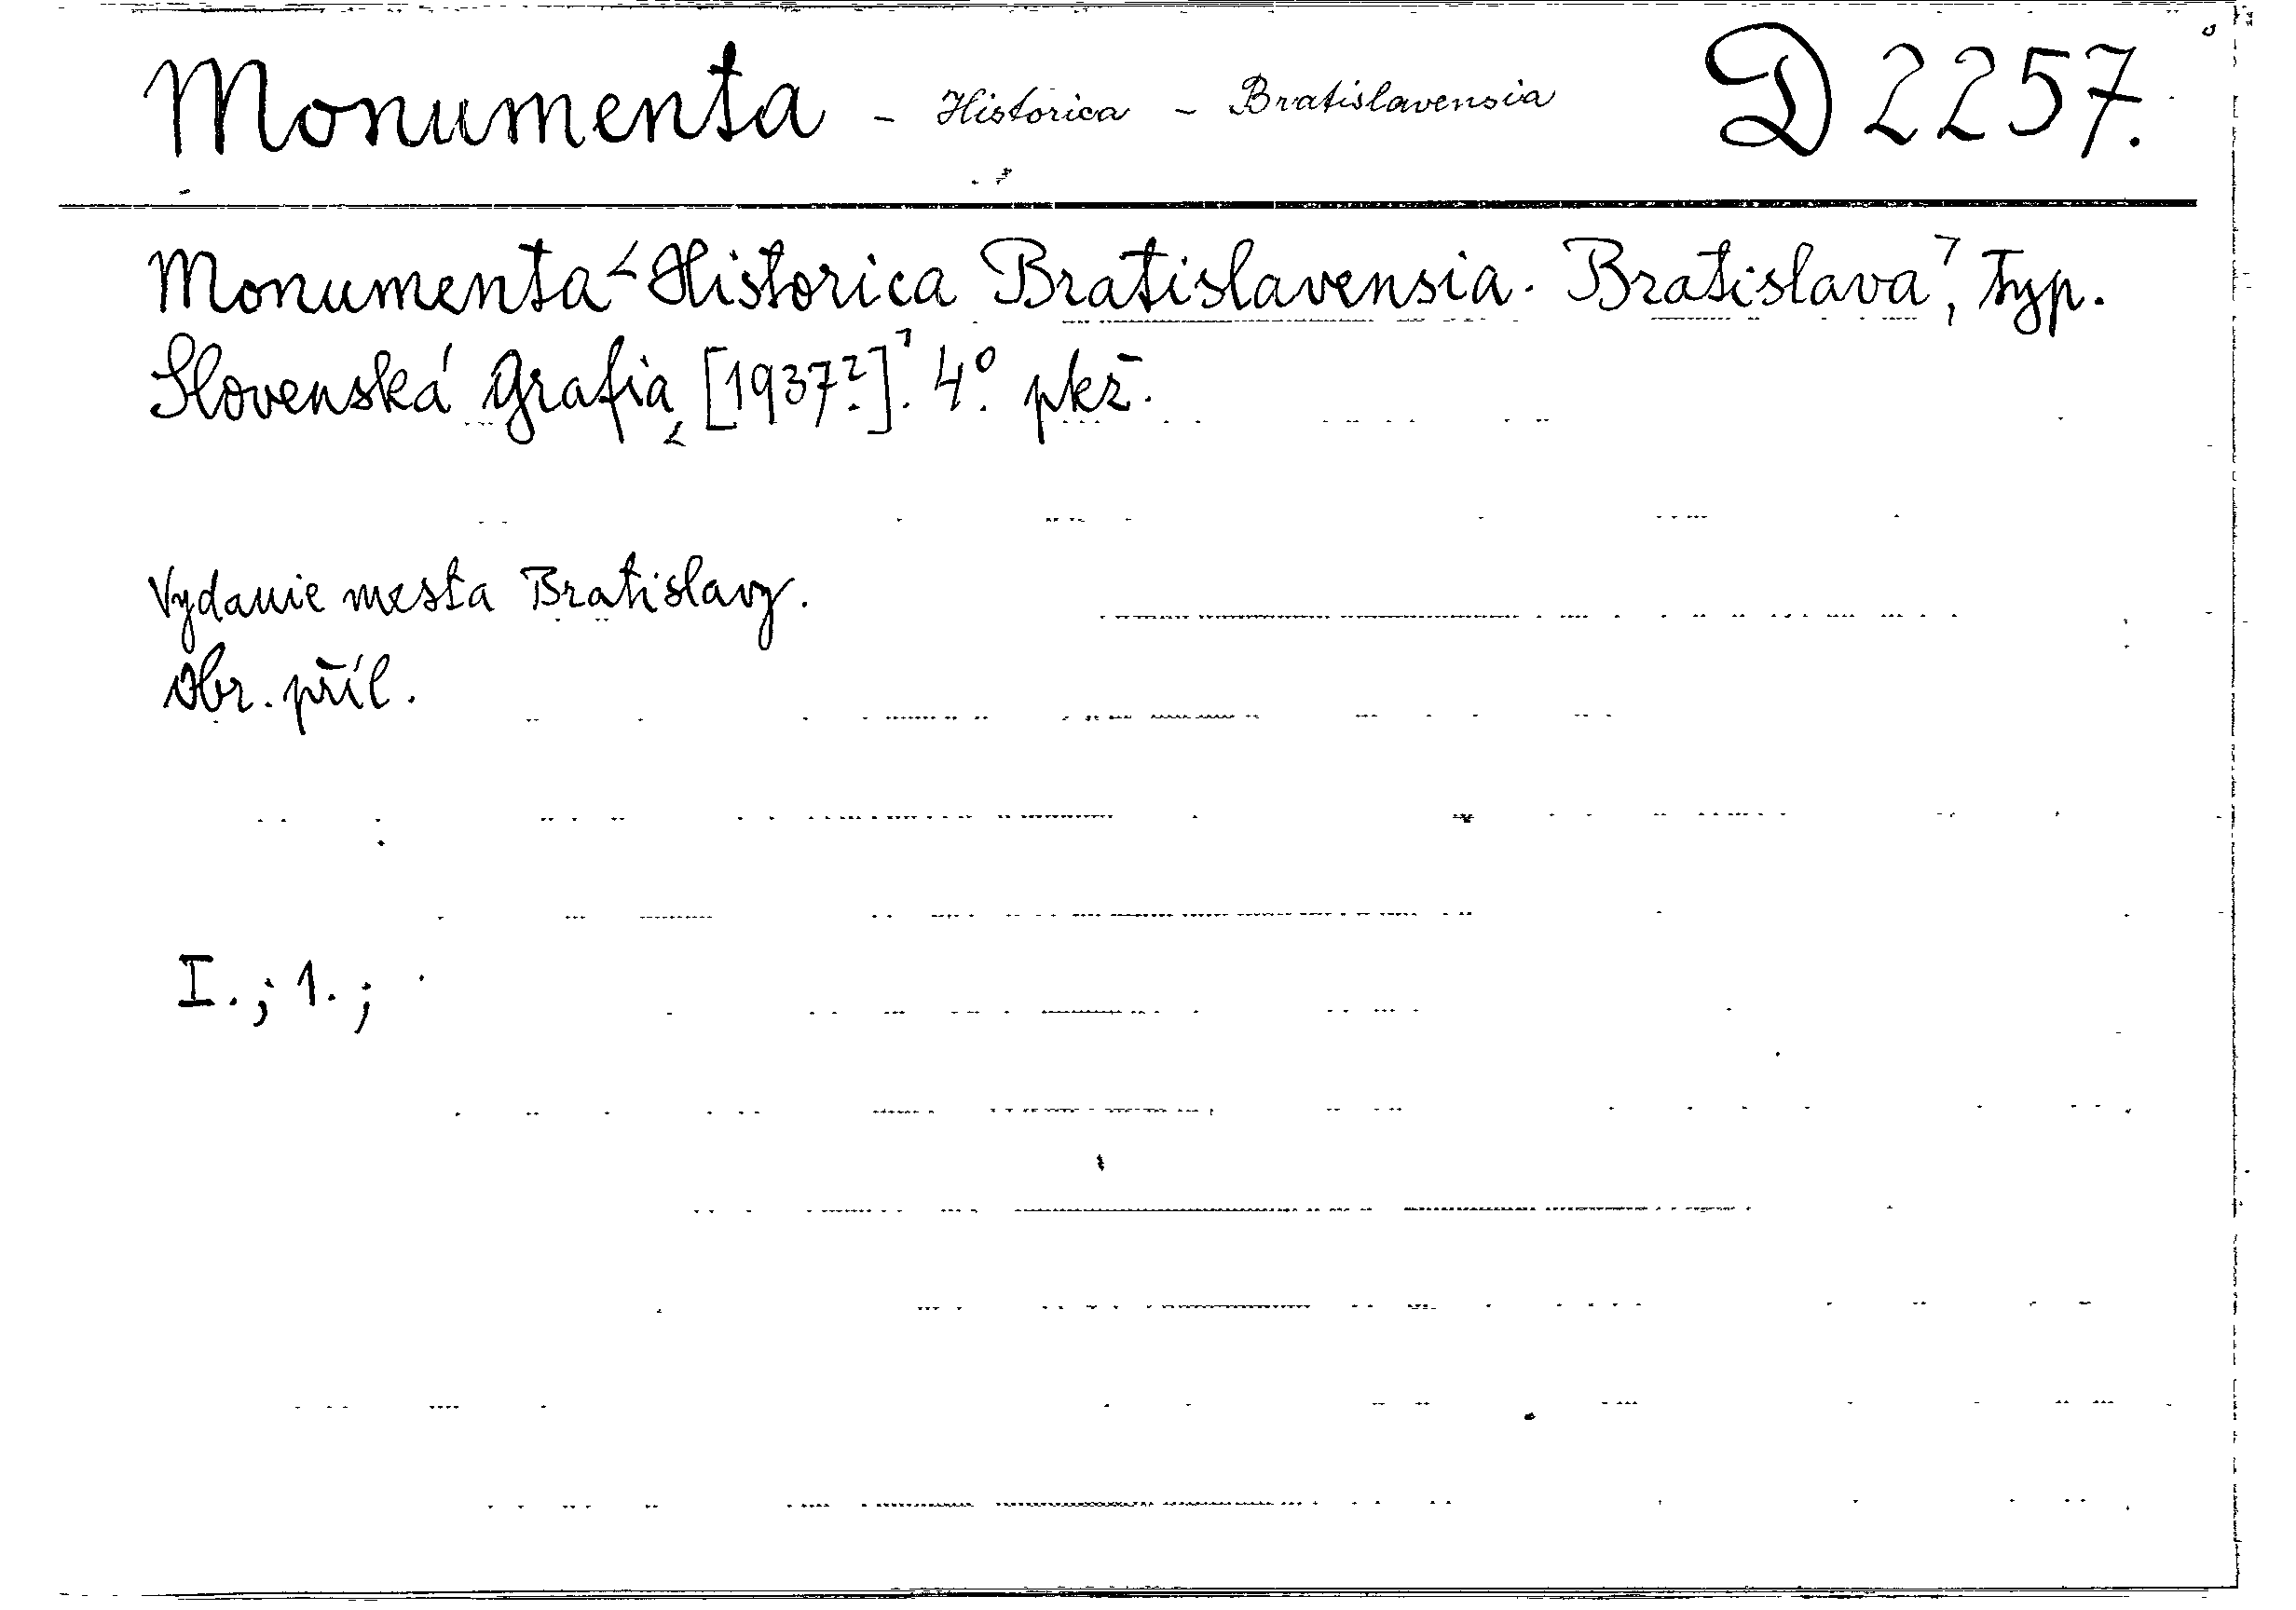 Monumenta - Historica - Bratislavensia D 2257.
Monumenta Historica Bratislavensia. Bratislava, Typ.
Slovenská Grafia, [1937?]. 4° pkž.
Vydanie mesta Bratislavy.
Obr. příl.
I.; 1.;